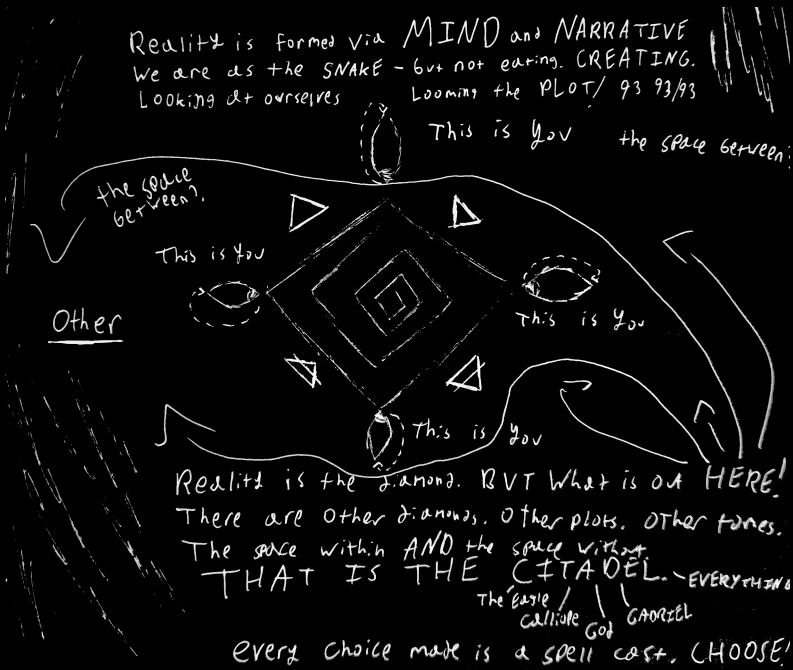 Reality is formed via MIND and NARRATIVE
We are as the SNAKE - but not eating. CREATING.
Looking at ourselves Looming the PLOT/ 93 93/93
This is You
the space between?
the space
between?
This is You
This is You
Other
This is You
Reality is the diamond. BUT What is out HERE!
There are other diamonds. Other plots. Other tones.
The space within AND the space without.
THAT IS THE CITADEL. EVERYTHING
The Eagle
Calliope
God
GABRIEL
every choice made is a spell cast. CHOOSE!